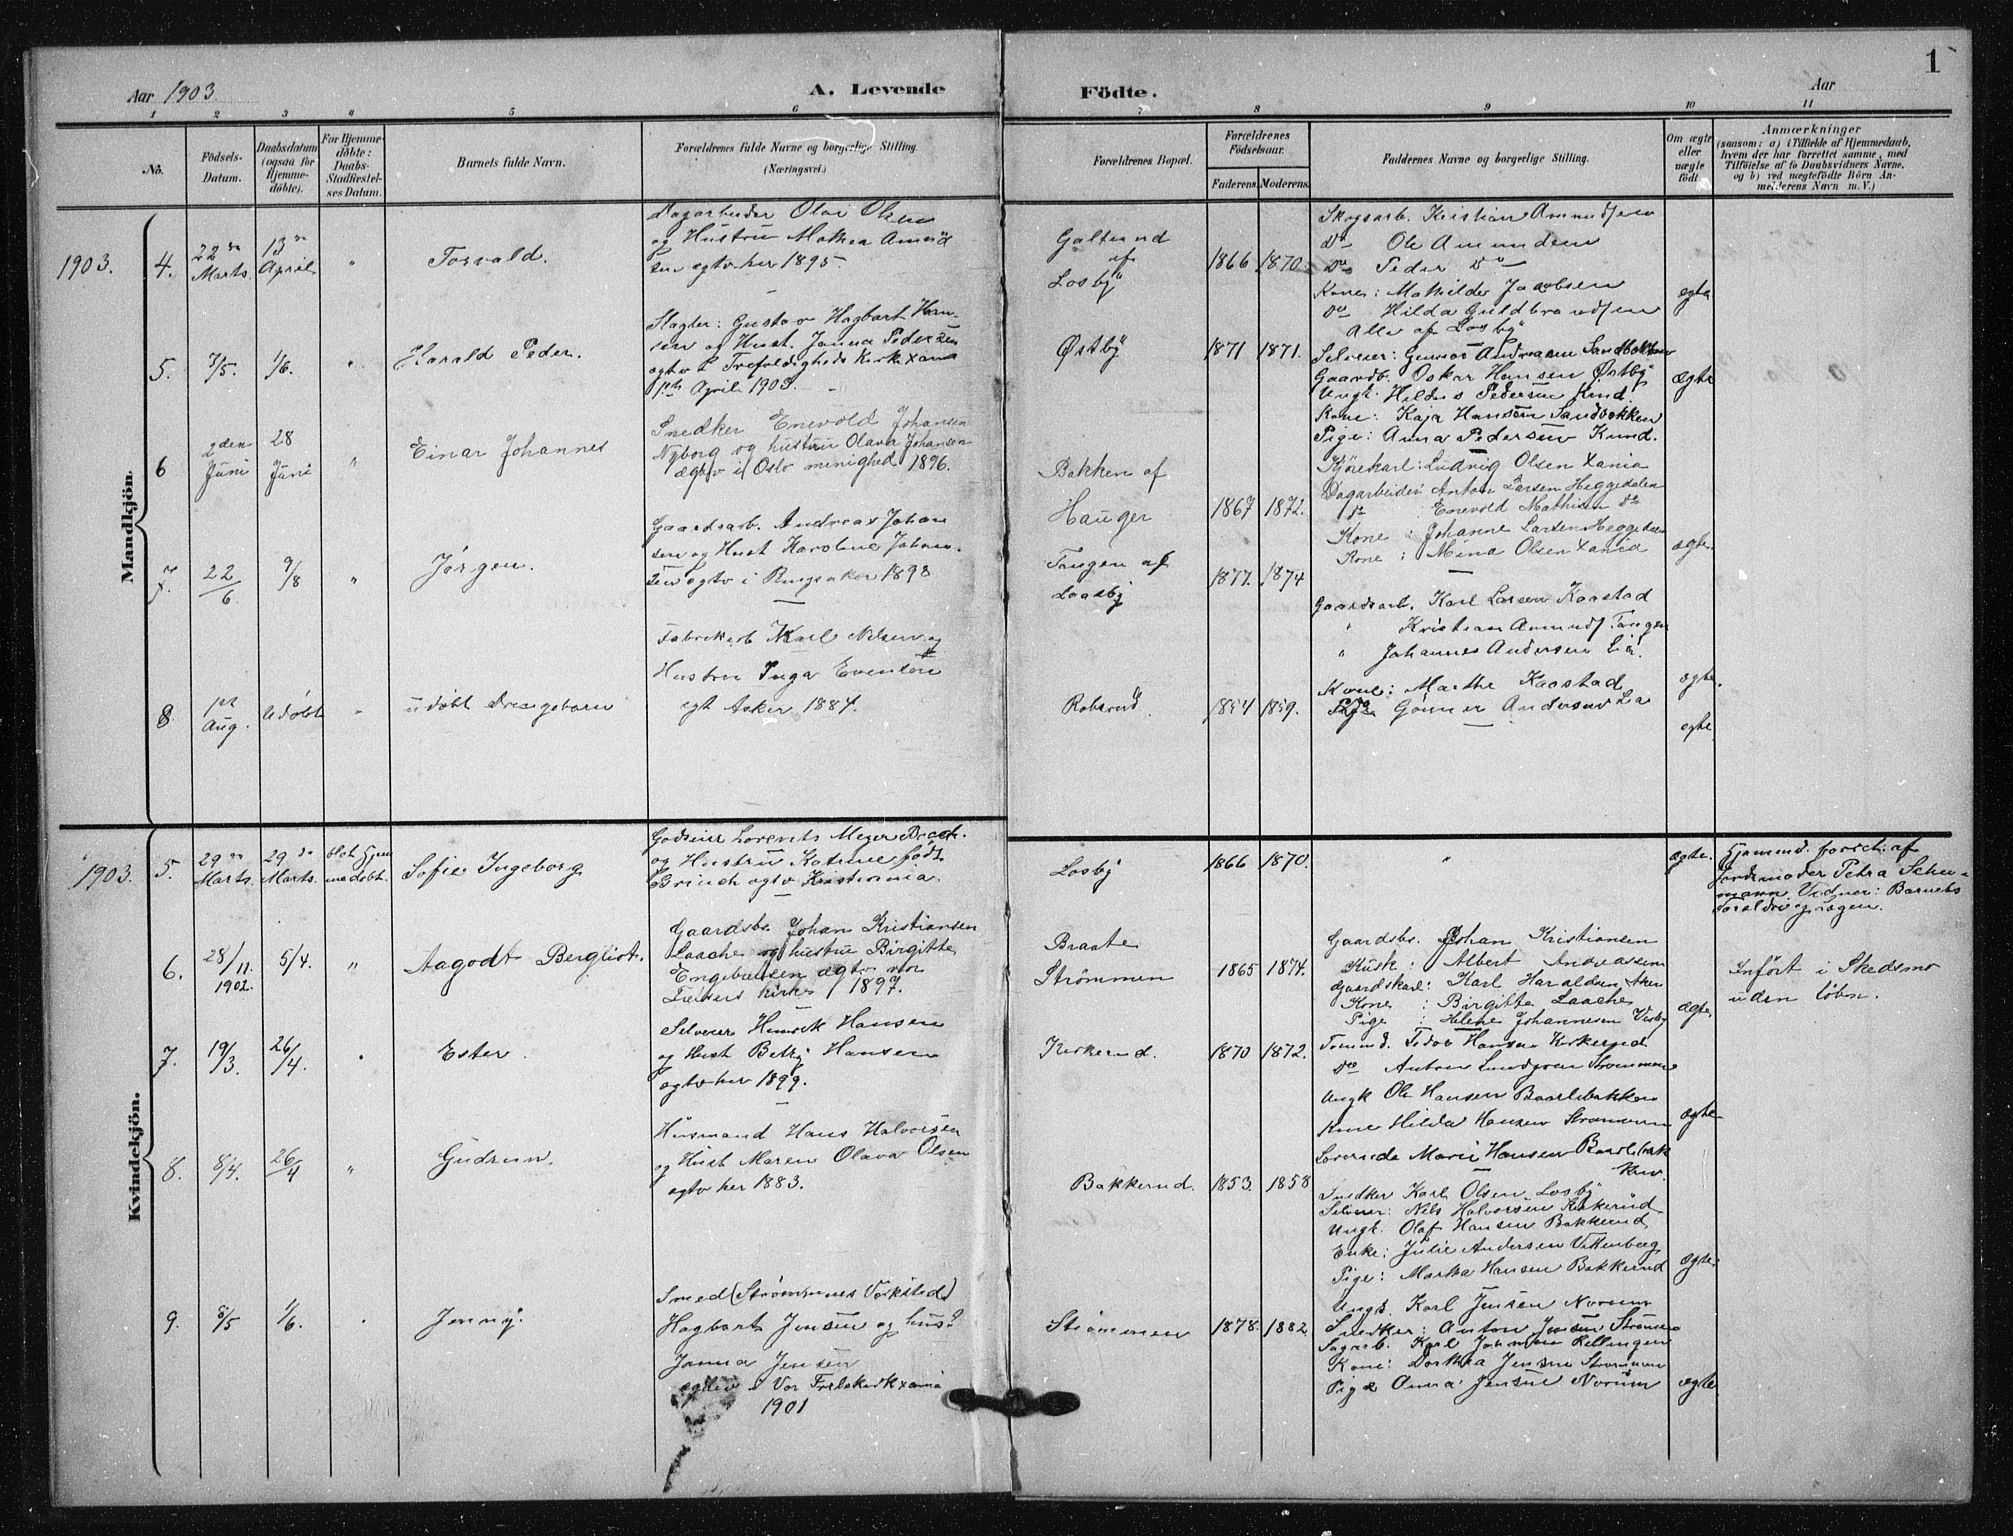 1
Aar 1903
A. Levende
Födte.
Aar
1 2 3 4 5 6 7 8 9 10 11
No.
Födsels-Datum.
Daabsdatum (ogsaa for Hjemmedöbte).
For Hjemmedöbte: Daabs-Stadfæstelses Datum.
Barnets fulde Navn.
Forældrenes fulde Navne og borgerlige Stilling. (Næringsvei.)
Forældrenes Bopæl.
Forældrenes Födselsaar.
Faderens. Moderens.
Faddernes Navne og borgerlige Stilling.
Om ægte eller uægte födt.
Anmærkninger
(saasom: a) i Tilfælde af Hjemmedaab,
hvem der har forrettet samme, med
Tilföielse af to Daabsvidners Navne.
og b) ved uægtefödte Börn Anmelderens Navn m. V.)
Mandkjön.
1903.
4.
22de Marts.
13de April.
"
Torvald.
Dagarbeider Olai Olsen
og Hustru Mathea Amund
sen egtv her 1895.
Galterud
af
Losby
1866 1870.
Skogsarb. Kristian Amundsen
Do Ole Amundsen
Do Peder Do
Kone: Mathilde Jacobsen
Do Hilda Guldbrandsen
Alle af Losby
egte
5.
7/5.
1/6.
"
Harald Peder.
Slagter: Gustav Hagbart Han-
sen og Hust. Janna Pedersen
egtv i Trefoldigheds Kirk Xania
1ste April 1903.
Østby
1871 1871.
Selveier: Gunnar Andreasen Sandbekken
Gaardb. Oskar Hansen Østby
Ungk. Hildus Pedersen Kind.
Kone: Kaja Hansen Sandbekken
Pige: Anna Pedersen Kund.
ægte
6
2den Juni
28 Juni
"
Einar Johannes
Snedker Enevold Johansen
Nyborg og hustru Olava Johansen
Ægtev i Oslo menighed 1896.
Bakken af
Hauger
1867 1872.
Kjörekarl: Ludvig Olsen Xania
Dagarbeider Anton Larsen Heggedalen
do : Enevold Mathisen do
Kone : Johanne Larsen Heggedalen
Kone : Mina Olsen Xania
ægte.
7.
22/6
9/8
"
Jørgen.
Gaardsarb. Andreas Johan
sen og Hust Karoline Johan-
sen egtv i Ringsaker 1898
Tangen af
Laasby
1877. 1874
Gaardsarb. Karl Larsen Kaastad
" Kristian Amunds Tangen
" Johannes Andersen Lia.
Kone: Marthe Kaastad
Pige Gunner Andersen Lia
egte.
8
1st Aug.
Udøbt
udöbt Drengebarn
Fabrikarb Karl Nilsen og
Hustru Inga Evensen
egt Asker 1884.
Robsrud.
1854 1859.
egte.
Kvindekjön.
1903.
5.
29de Marts.
29de Marts.
blot hjem medøbt.
Sofie Ingeborg
Godseier Lorents Meyer Boeck.
og Hustru Katrine født
Brinch egtv Kristiania.
Losby
1866 1870.
"
ægte.
Hjemmed. forret. af
Jordemoder Petra Schu-
mann Vidner: Barnets
Foreldre og ingen.
6.
28/11. 1902.
5/4.
"
Aagodt Bergliot.
Gaardsbr. Johan Kristiansen
Laache og hustru Birgitte
Engebretsen ægtv. vor
Frelsers kirke 1897.
Braate
Strömmen
1865 1874.
Gaardsbr. Johan Kristiansen
Kusk : Albert Andreassen
Gaardskarl: Karl Haraldsen Aker
Kone : Birgitte Laache
Pige : Helene Johannesen Visby
ægte.
Inført i Skedsmo
uden löbn.
7.
19/3.
26/4.
"
Ester.
Selveier Henrik Hansen
og Hust Betzy Hansen
egtv her 1899.
Kirkerud.
1870 1872.
Tommd. Teodor Hansen Kirkerud
Do Anton Lundgren Strommen
Ungk Ole Hansen Baarlibakken
Kone Hilda Hansen Strommen
Loverende Marie Hansen Baarlibak
ken.
ægte
8.
8/4.
26/4
"
Gudrun.
Husmand Hans Halvorsen
og Hust Maren Olava Olsen
egtv her 1883.
Bakkerud.
1853. 1858
Snedker Karl Olsen Losby
Selveier: Nils Halvorsen Kirkerud
Ungk. Olaf Hansen Bakkerud
Enke: Julie Andersen Vittenberg
Pige: Martha Hansen Bakkerud
egte.
9.
8/5
1/6.
Jenny.
Smed (Strømmens Værksted)
Hagbart Jensen og hus.
Janna Jensen
egtev i Vor Frelsk Kirk Xania
1901
Strømmen
1878. 1882.
Ungk. Karl Jensen Norum
Snedker: Anton Jensen Strømmen
Sagarb. Karl Johansen Rellingen
Kone: Dorthea Jensen Strommen
Pige Anna Jensen Norum
egte